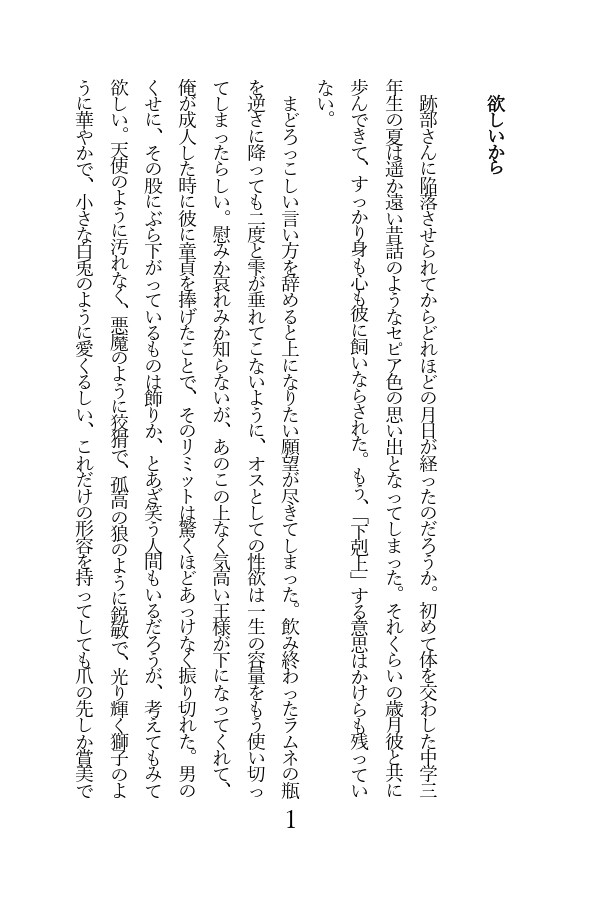 欲しいから
跡部さんに陥落させられてからどれほどの月日が経ったのだろうか。初めて体を交わした中学三
年生の夏は遥か遠い昔話のようなセピア色の思い出となってしまった。それくらいの歳月彼と共に
歩んできて、すっかり身も心も彼に飼いならされた。もう、「下剋上」する意思はかけらも残ってい
ない。
まどろっこしい言い方を辞めると上になりたい願望が尽きてしまった。飲み終わったラムネの瓶
を逆さに降っても二度と雫が垂れてこないように、オスとしての性欲は一生の容量をもう使い切っ
てしまったらしい。慰みか哀れみか知らないが、あのこの上なく気高い王様が下になってくれて、
俺が成人した時に彼に童貞を捧げたことで、そのリミットは驚くほどあっけなく振り切れた。男の
くせに、その股にぶら下がっているものは飾りか、とあざ笑う人間もいるだろうが、考えてもみて
欲しい。天使のように汚れなく、悪魔のように狡猾で、孤高の狼のように鋭敏で、光り輝く獅子のよ
うに華やかで、小さな白兎のように愛くるしい、これだけの形容を持ってしても爪の先しか賞美で
1